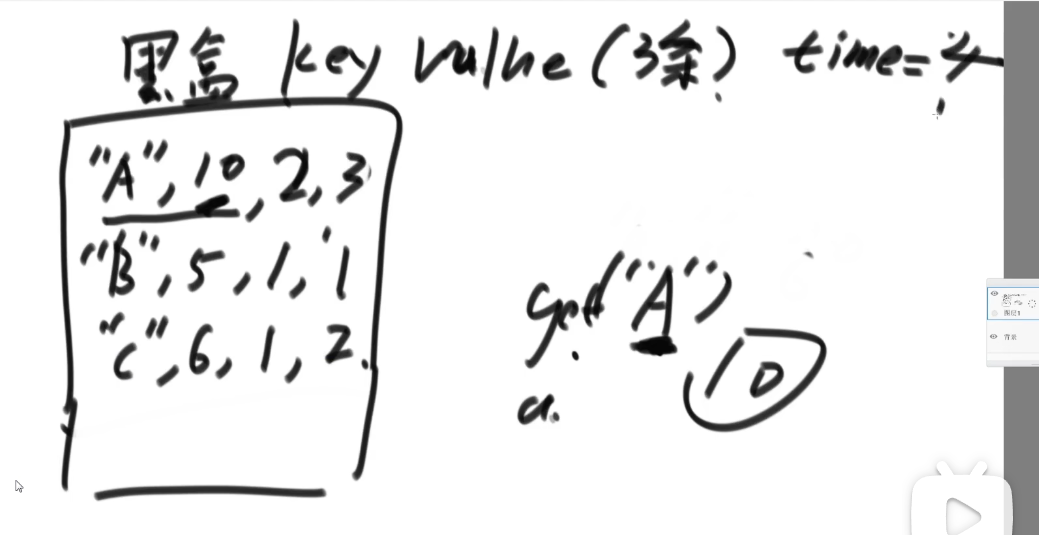 黑盒 key value (3条) time=4
"A", 10, 2, 3
"B", 5, 1, 1
"C", 6, 1, 2
get("A")
10
a.
图层1
背景